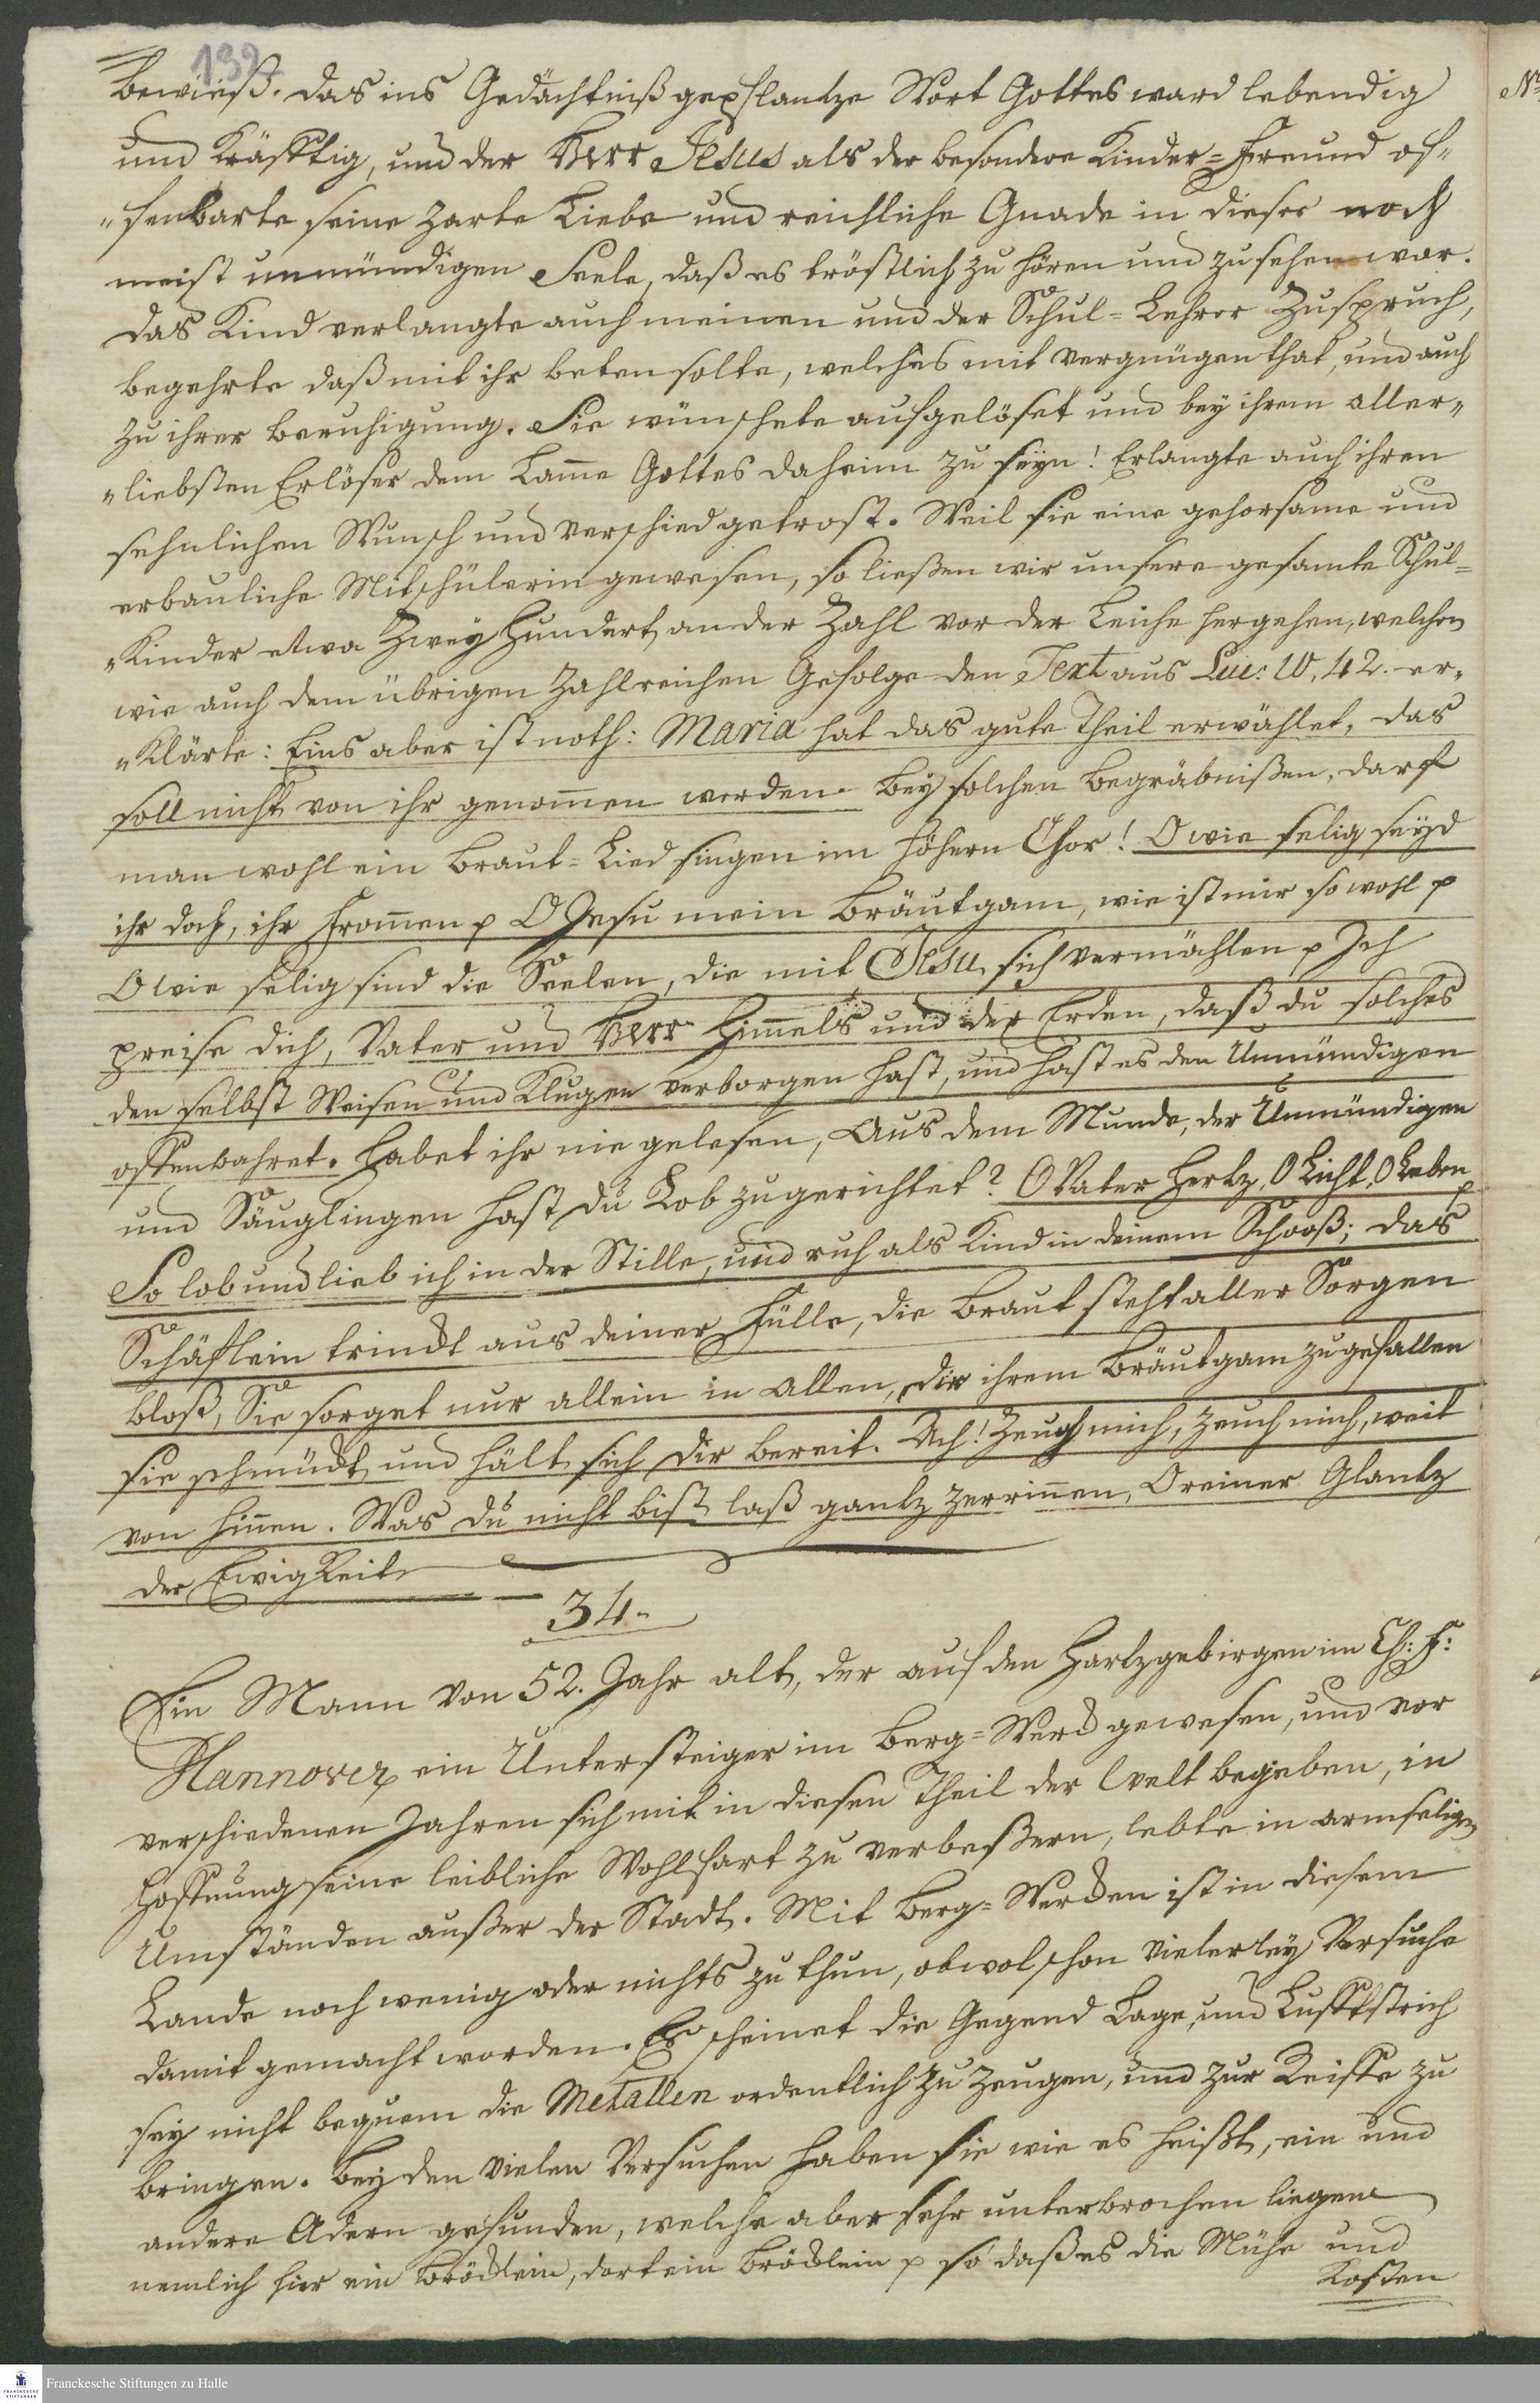 132
bewieß. das ins Gedächtniß gepflantze Wort Gottes ward lebendig
und kräfftig, und der Herr Jesus als der besondere Kinder=Freund of„
„fenbarte seine zarte Liebe und reichliche Gnade in dieser noch
meist unmündigen Seele, daß es tröstlich zu hören und zu sehen war.
das Kind verlangte auch meinen und der Schul=Lehrer Zuspruch,
begehrte daß mit ihr beten solte, welches mit Vergnügen that, und auch
zu ihrer Beruhigung. Sie wünschete aufgelöset und bey ihrem aller„
„liebsten Erlöser dem Lam̄e Gottes daheim zu seyn! Erlangte auch ihren
sehnlichen Wunsch und verschied getrost. Weil sie eine gehorsame und
erbauliche Mitschülerin gewesen, so ließen wir unsere gesamte Schul=
„Kinder etwa Zwey Hundert an der Zahl vor der Leiche hergehen, welchen
wie auch dem übrigen zahlreichen Gefolge den Text aus Luc: 10, 42. er„
„klärte: Eins aber ist noth: Maria hat das gute Theil erwählet, das
soll nicht von ihr genom̄en werden. Bey solchen Begräbnißen, darf
man wohl ein Braut=Lied singen im höhern Chor! O wie selig seyd
ihr doch, ihr From̄en p O Jesu mein Bräutgam, wie ist mir so wohl p
O wie selig sind die Seelen, die mit Jesu sich vermählen p Ich
preise dich, Vater und Herr Him̄els und der Erden, daß du solches
den selbst Weisen und Klugen verborgen hast, und hast es den Unmündigen
offenbahret. Habet ihr nie gelesen, Aus dem Munde, der Unmündigen
und Säuglingen hast du Lob zugerichtet? O Vater Hertz, O Licht, O Leben p
So lob und lieb ich in der Stille, und ruh als Kind in deinem Schooß; das
Schäflein trinckt aus deiner Fülle, die Braut steht aller Sorgen
bloß, Sie sorget nur allein in allen, dir ihrem Bräutgam zugefallen
sie schmückt und hält sich dir bereit. Ach! Zeuch mich, zeuch mich, weit
von hin̄en. Was du nicht bist, laß gantz zerrin̄en, O reiner Glantz
der Ewigkeit
34.
Ein Mann von 52. Jahr alt, der auf den Hartzgebirgen im Ch: F:
Hannover ein Untersteiger im Berg=Werck gewesen, und vor
verschiedenen Jahren sich mit in diesen Theil der Welt begeben, in
Hoffnung seine leibliche Wohlfart zu verbeßern, lebte in armseligen
Umständen außer der Stadt. Mit Berg=Wercken ist in diesem
Lande noch wenig oder nichts zu thun, obwol schon vielerley Versuche
damit gemacht worden. Es scheinet die Gegend Lage, und Lufftstrich
sey nicht bequem die Metallen ordentlich zu zeugen, und zur Reiffe zu
bringen. Bey den vielen Versuchen haben sie wie es heißt, ein und
andere Adern gefunden, welche aber sehr unterbrochen liegen
nemlich hier ein Bröcklein, dort ein Bröcklein p so daß es die Mühe und
Kosten
No
Franckesche Stiftungen zu Halle